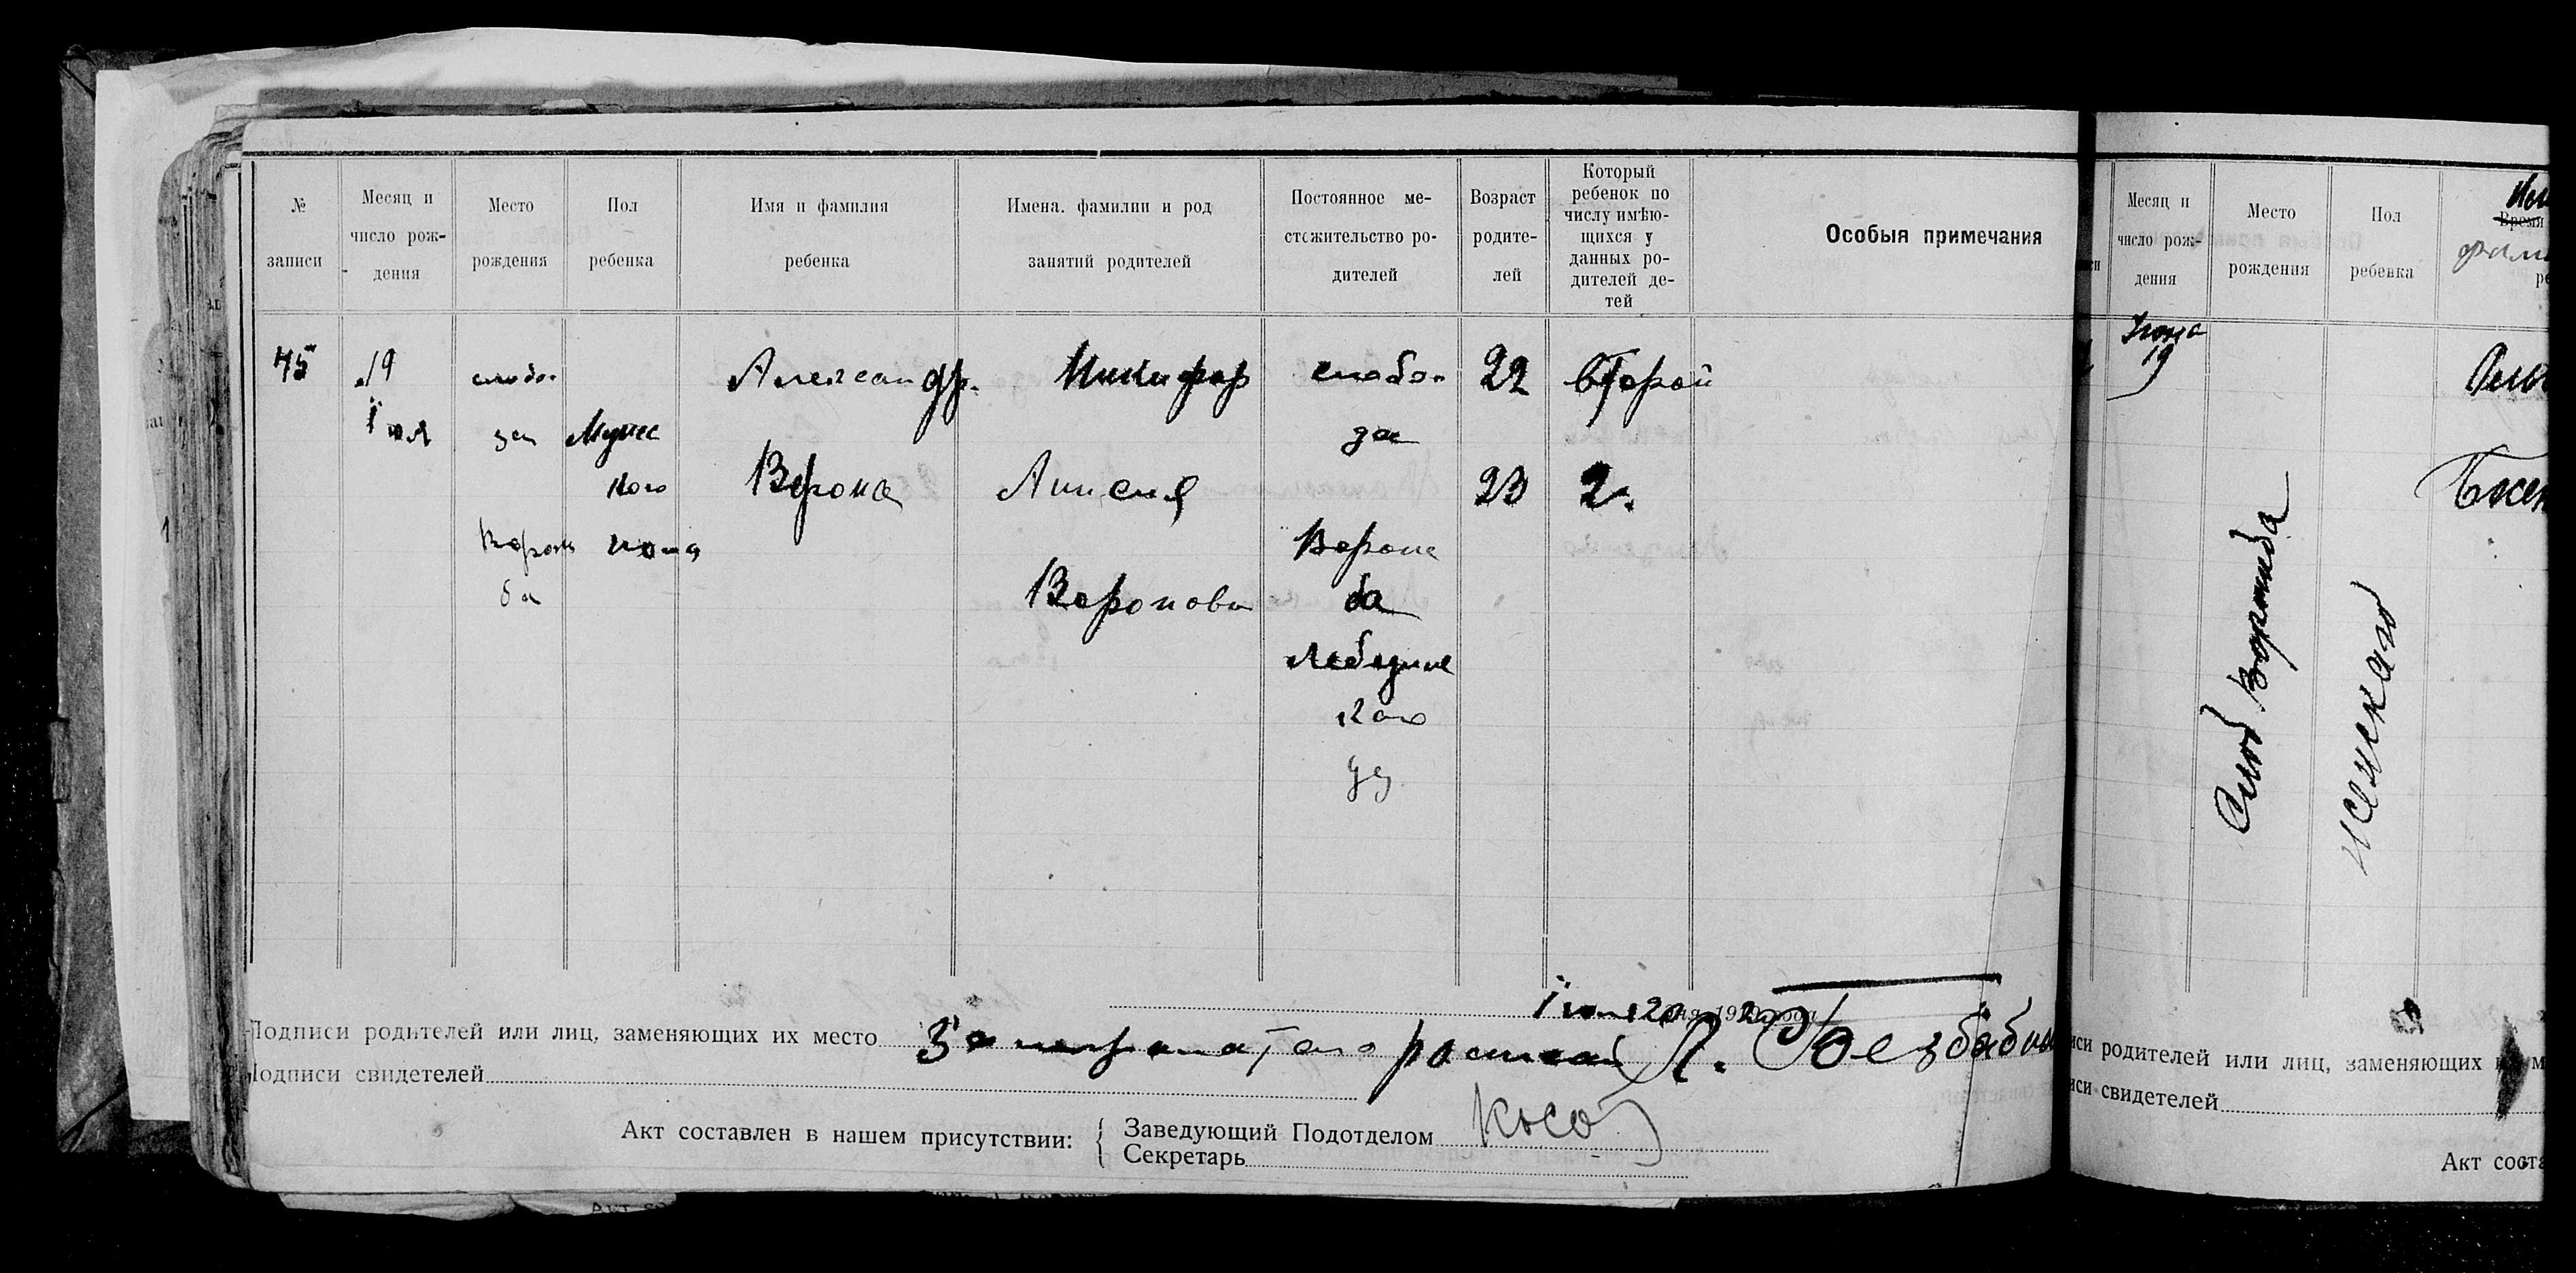 № записи
Месяц и число рождения
Место рождения
Пол ребенка
Имя и фамилия ребенка
Имена. фамилии и род занятий родителей
Постоянное местожительство родителей
Возраст родителей
Который ребенок по числу имѣющихся у данных родителей детей
Особыя примечания
75
19
Июля
слобо-
да
Ворож
ба
Мужс
кого
пола
Александр.
Ворона
Никифор
Анисия
Воронови
слобо-
да
Ворож
ба
Лебединс
кого
уез
22
23
второй
2.
Подписи родителей или лиц, заменяющих их место За неграмотаго росписал П. Безбабны
Подписи свидетелей
Акт составлен в нашем присутствии:
Заведующий Подотделом
Секретарь
Месяц и число рождения
Место рождения
Пол ребенка
Июня
19
Слоб. Ворожба
женскаго
родителей или лиц, заменяющих
свидетелей
Акт соста